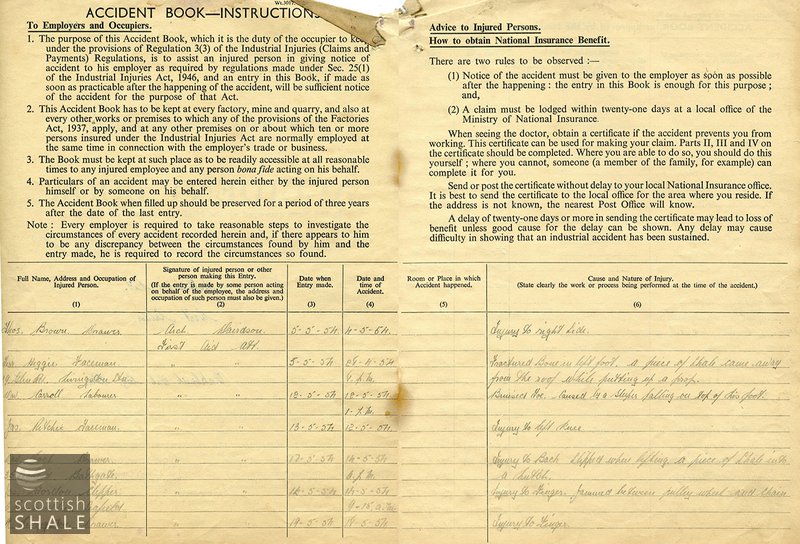 ACCIDENT BOOK—INSTRUCTIONS
To Employers and Occupiers.
1. The purpose of this Accident Book, which it is the duty of the occupier to keep
under the provisions of Regulation 3(3) of the Industrial Injuries (Claims and
Payments) Regulations, is to assist an injured person in giving notice of
accident to his employer as required by regulations made under Sec. 25(1)
of the Industrial Injuries Act, 1946, and an entry in this Book, if made as
soon as practicable after the happening of the accident, will be sufficient notice
of the accident for the purpose of that Act.
2. This Accident Book has to be kept at every factory, mine and quarry, and also at
every other works or premises to which any of the provisions of the Factories
Act, 1937, apply, and at any other premises on or about which ten or more
persons insured under the Industrial Injuries Act are normally employed at
the same time in connection with the employer's trade or business.
3. The Book must be kept at such place as to be readily accessible at all reasonable
times to any injured employee and any person bona fide acting on his behalf.
4. Particulars of an accident may be entered herein either by the injured person
himself or by someone on his behalf.
5. The Accident Book when filled up should be preserved for a period of three years
after the date of the last entry.
Note : Every employer is required to take reasonable steps to investigate the
circumstances of every accident recorded herein and, if there appears to him
to be any discrepancy between the circumstances found by him and the
entry made, he is required to record the circumstances so found.
Advice to Injured Persons.
How to obtain National Insurance Benefit.
There are two rules to be observed :—
(1) Notice of the accident must be given to the employer as soon as possible
after the happening : the entry in this Book is enough for this purpose ;
and,
(2) A claim must be lodged within twenty-one days at a local office of the
Ministry of National Insurance.
When seeing the doctor, obtain a certificate if the accident prevents you from
working. This certificate can be used for making your claim. Parts II, III and IV on
the certificate should be completed. Where you are able to do so, you should do this
yourself ; where you cannot, someone (a member of the family, for example) can
complete it for you.
Send or post the certificate without delay to your local National Insurance office.
It is best to send the certificate to the local office for the area where you reside. If
the address is not known, the nearest Post Office will know.
A delay of twenty-one days or more in sending the certificate may lead to loss of
benefit unless good cause for the delay can be shown. Any delay may cause
difficulty in showing that an industrial accident has been sustained.
Full Name, Address and Occupation of
Injured Person.
(1)
Signature of injured person or other
person making this Entry.
(If the entry is made by some person acting
on behalf of the employee, the address and
occupation of such person must also be given.)
(2)
Date when
Entry made.
(3)
Date and
time of
Accident.
(4)
Room or Place in which
Accident happened.
(5)
Cause and Nature of Injury.
(State clearly the work or process being performed at the time of the accident.)
(6)
Brown Drawer Arch 5-5-54 4-5-54 Injury to right side.
First Aid Att.
Faceman " " 5-5-54 Fractured Bone in left foot. a piece of shale came away
Livingston from the roof while putting up a prop.
Carroll Labourer " " Bruised Toe. Caused by a Sleeper falling on top of his foot.
Ritchie Faceman " " 13-5-54 12-5-54 Injury to left knee.
Drawer " " 17-5-54 Injury to Back. Slipped when lifting a piece of shale into
Bathgate a hutch.
Injury to Finger. Jammed between pulley wheel and chain
Drawer " " 19-5-54 Injury to Finger.
scottish
SHALE